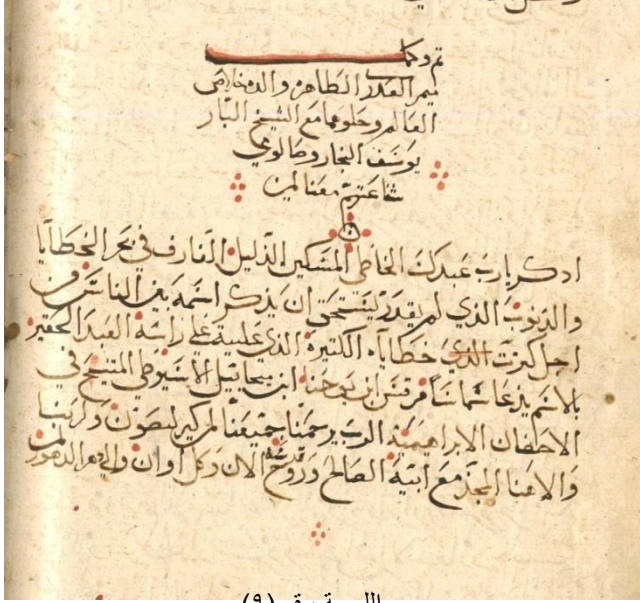 تم وكمل
ميمر العدرا الطاهرة والدة خلاص
العالم وحلومها مع الشيخ البار
يوسف النجار وصالومي
شفاعتهم معنا امين
ادكر يارب عبدك الخاطي المسكين الدليل الغارف في بحر الخطايا
والدنوب الذي لم يقدر يستحق ان يذكر اسمه بين الناس من
اجل كترت الذي خطاياه الكتيرة الذي علية على راسه العبد الحقير
بالاسم يدعا شماسا مرقس ابن يوحنا ابن ميخاييل الاسيوطي المتنيح في
الاحضان الابراهيمية الرب يرحمنا جميعنا
والاهنا المجد مع ابيه الصالح وروح الان وكل اوان والى دهر الدهور امين
اللوحة رقم (٩)